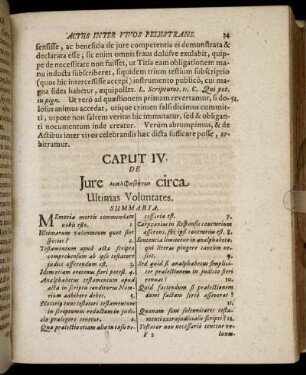 ACTUS INTER VIVOS PELUSTRANS. 34
sensisse, ac beneficia de jure competentia ei demonstrata &
declarata esse; sic enim omnis fraus dolusve exulabit, quip-
pe de necessitate non fuisset, ut Titia eam obligationem ma-
nu inducta subscriberet, siquidem trium testium subscriptio
(quos hic intercessisse accepi) instrumento publico cui, ma-
gna sides habetur, æquipollet. L. Scripturas. 11. C. Qui pot.
in pign. Ut verò ad quæstionem primam revertamur, si do- 52.
losus animus accedat, utique crimen falsi dicimus commit-
ti, utpote non saltem veritas hic immutatur, sed & obligan-
ti documentum inde creatur. Verùm abrumpimus, & de
Actibus inter vivos celebrandis hæc dicta sufficere posse, ar-
bitramur.
CAPUT IV.
DE
Jure circa
Ultimas Voluntates.
SUMMARIA.
Memoria mortis commendata
nobis est. 1.
Ultimarum voluntatum quot sint
species? 2.
Testamentum apud acta scripto
comprehensum ab ipso testatore
judici afferendum est. 3.
Idemoriam oretenus fieri potest. 4.
Analphabetus testamentum apud
acta in scriptis conditurus Nota-
rium adhibere debet. 5.
Rusticus testamentum
in scripturam redactum in judi-
cio prælegere tenetur. 6.
Qua prælectio etiam alio in casu ne-
cessaria est. 7.
Carpzovius in Responsis contrarium
asserens, sibi ipsi contrarius est. 8.
Sententia limitatur in analphabeto,
qui literas pingere tantum
novit. 9.
Sed quid si analphabetus simplici-
ter prælectionem in judicio fieri
renuat? 10.
Quid faciendum si prælectionem
dami factam fuisse asserat?
11.
Quænam sunt solennitates testa-
menti extrajudicialis scripti? 12.
Testator non necessariò tenetur vo-
F 2 lunt-